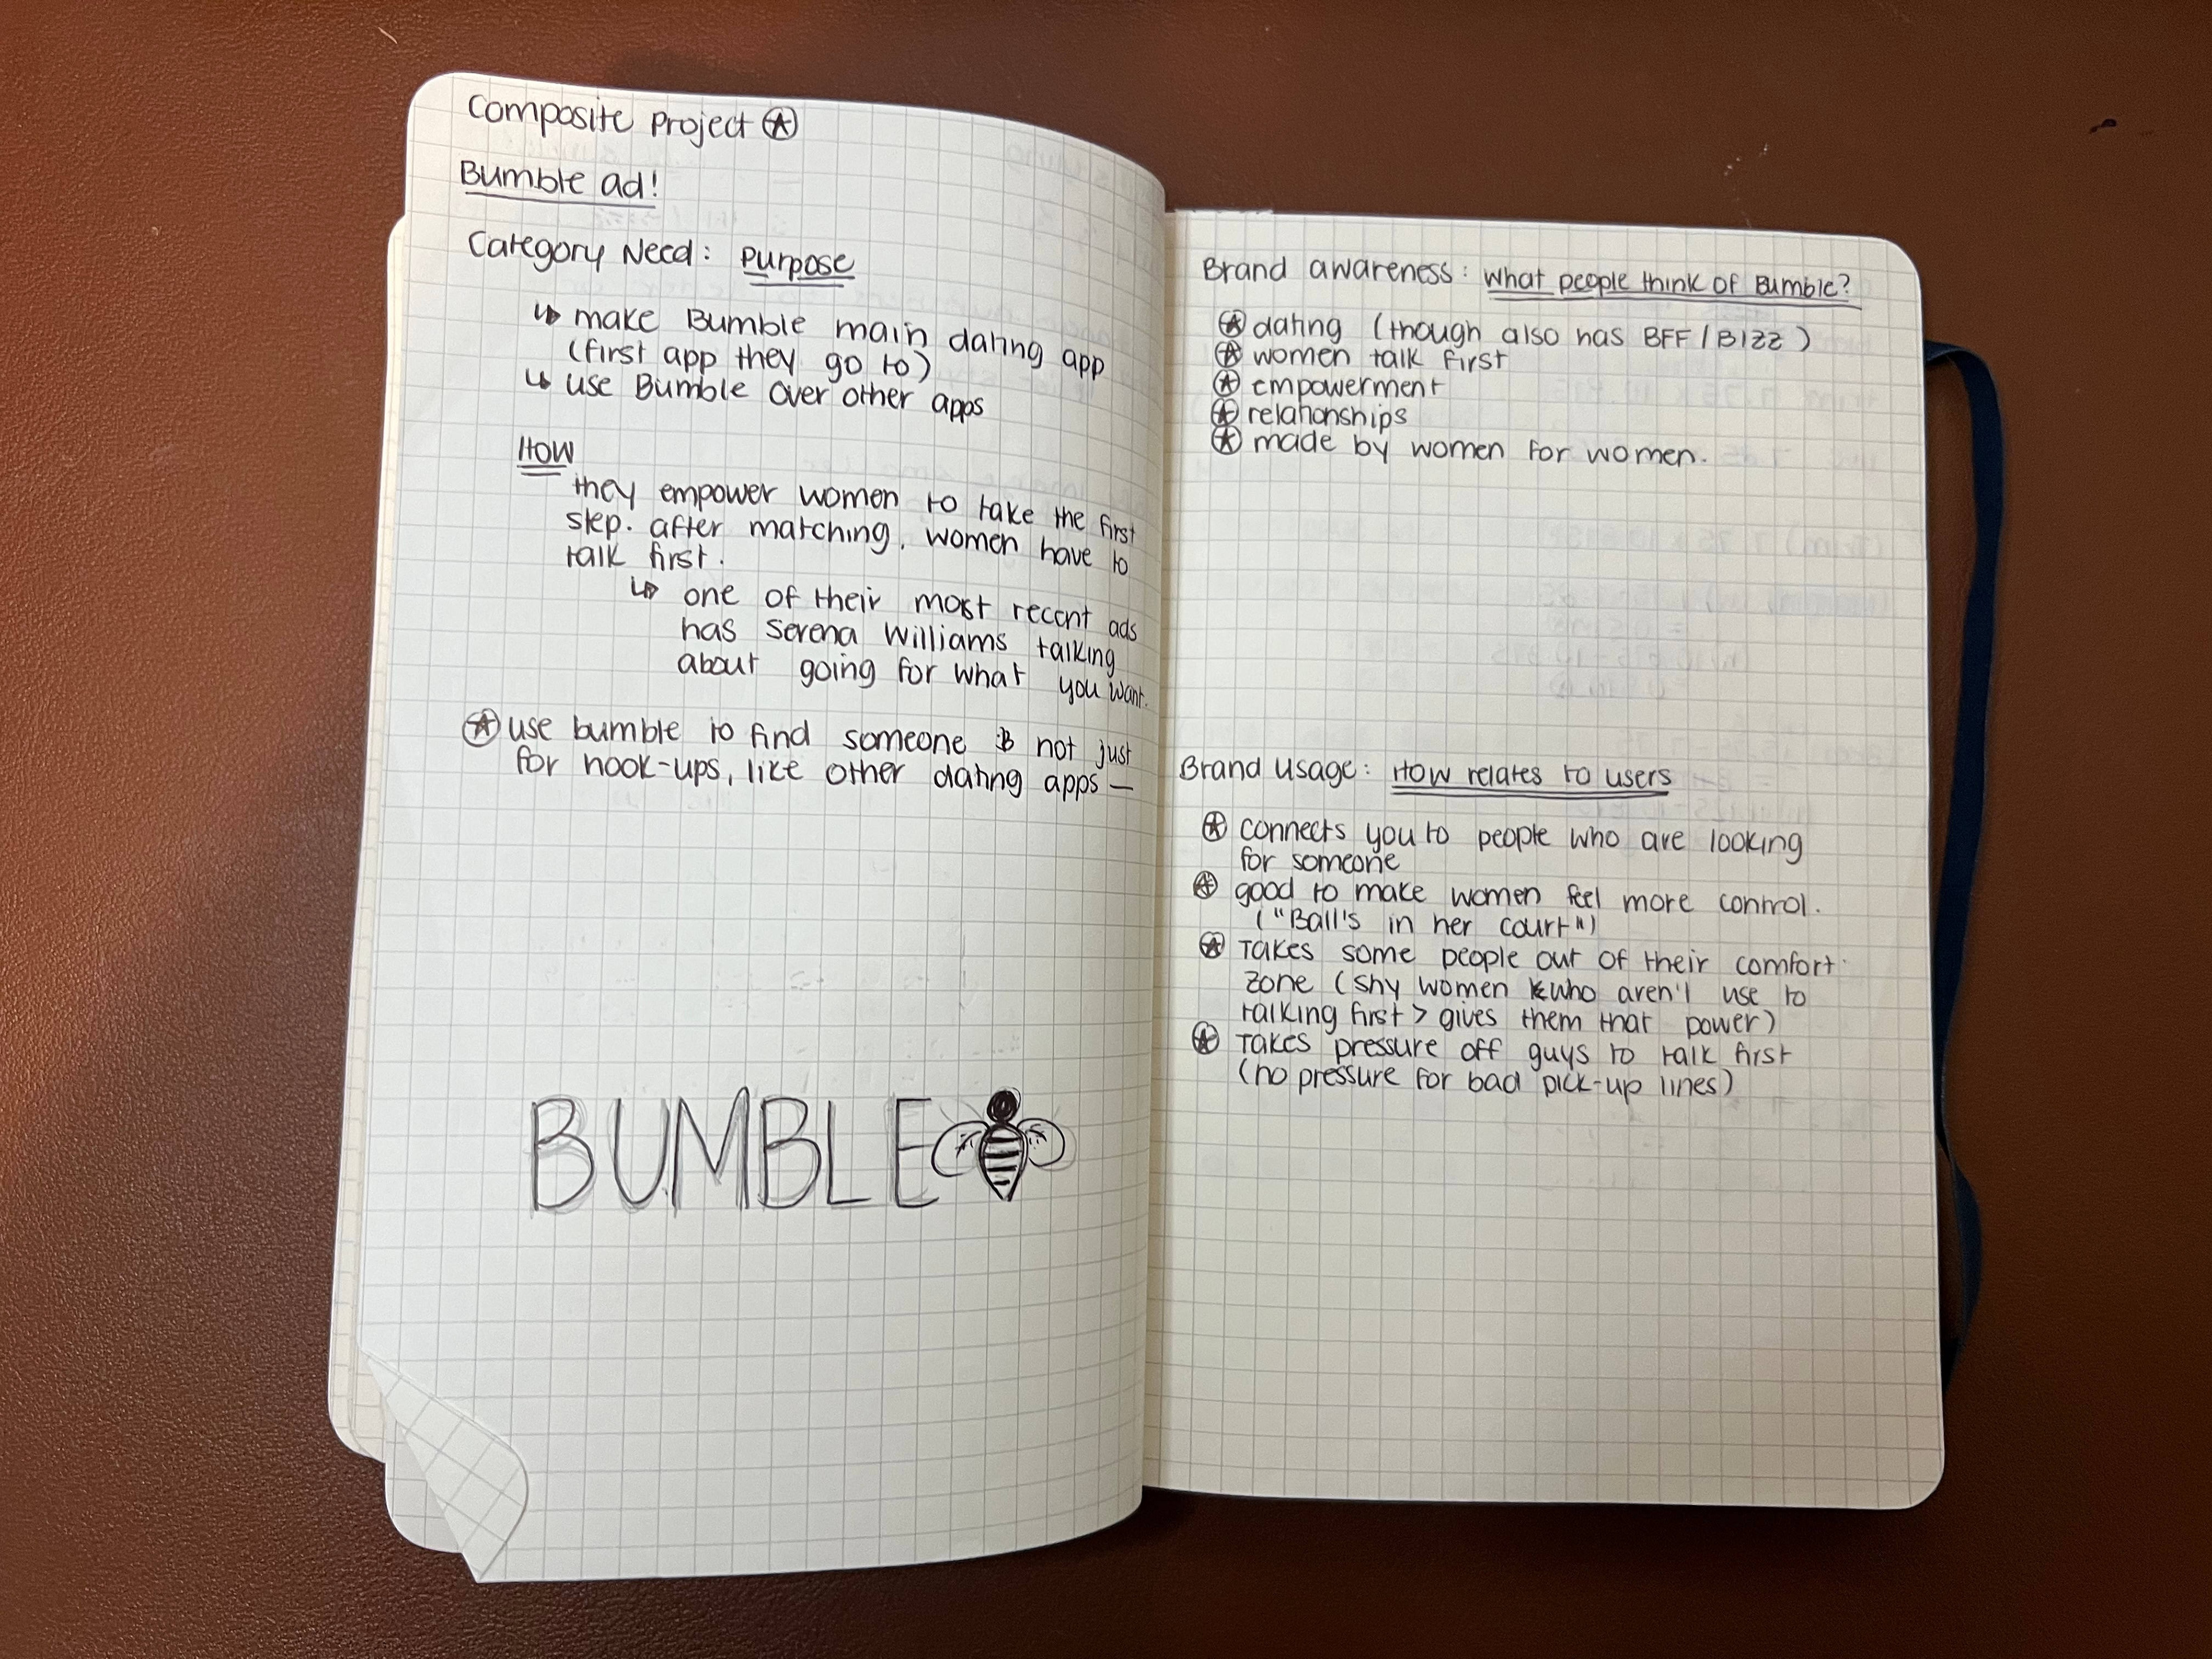 Composite Project
Bumble ad!
Category Need: Purpose
make Bumble main dating app
(first app they go to)
use Bumble over other apps
HOW
they empower women to take the first
step. after matching, women have to
talk first.
one of their most recent ads
has Serena Williams talking
about going for what you want.
use bumble to find someone not just
for hook-ups, like other dating apps —
BUMBLE
Brand awareness: What people think of Bumble?
dating (though also has BFF/BIZZ)
women talk first
empowerment
relationships
made by women for women.
Brand Usage: How relates to users
connects you to people who are looking
for someone
good to make women feel more control.
("Ball's in her court")
Takes some people out of their comfort
zone (shy women who aren't use to
talking first > gives them that power)
Takes pressure off guys to talk first
(no pressure for bad pick-up lines)